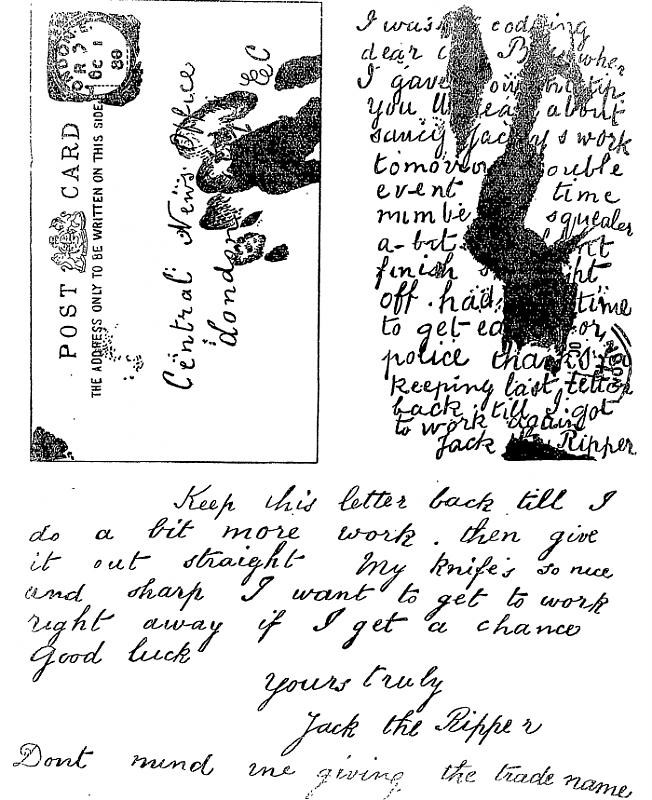 OC 1
88
POST CARD
THE ADDRESS ONLY TO BE WRITTEN ON THIS SIDE
Central News Office
London
EC
I was codding
dear when
I gave tip
You about
saucy Jacky s work
tomorrow
event time
squealer
a bit
finish
off. had time
to get
police thanks
keeping last letter
back till I got
to work again
Jack the Ripper
Keep this letter back till I
do a bit more work. then give
it out straight My knife's so nice
and sharp I want to get to work
right away if I get a chance
Good luck
yours truly
Jack the Ripper
Dont mind me giving the trade name